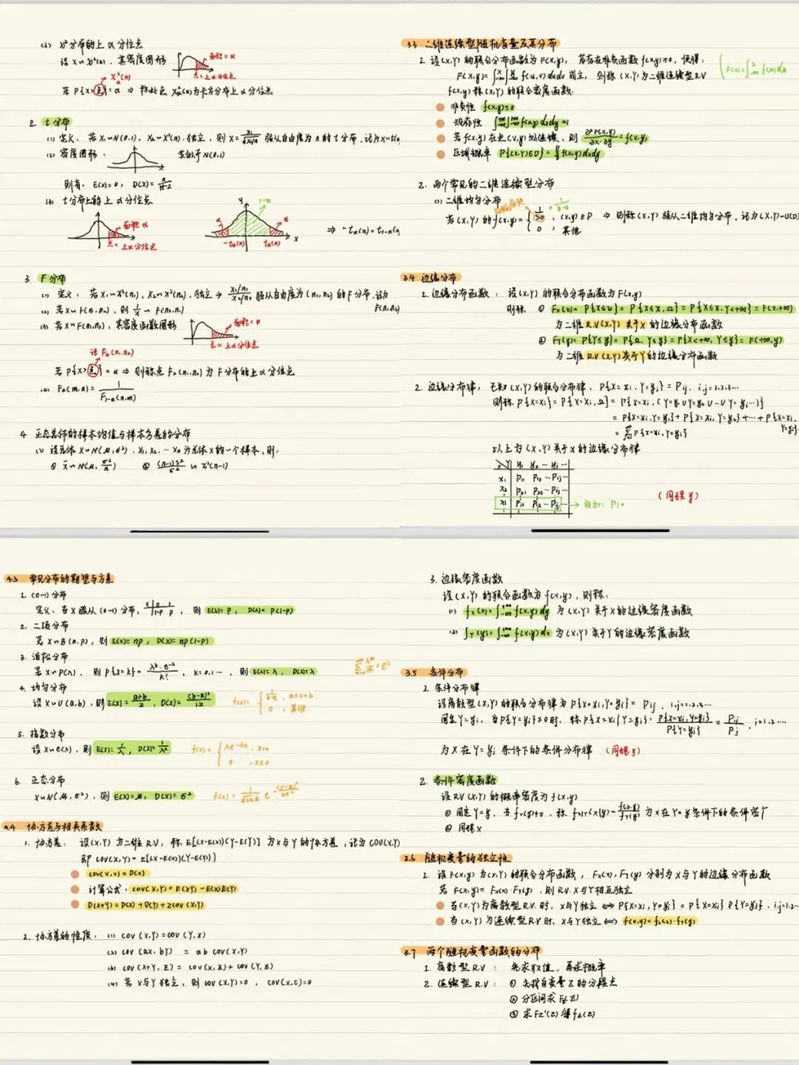 (3) χ²分布的上α分位点
设 X~χ²(n), 其密度图形
面积=α
点=上α分位点
χ²α(n)
若 P{X>点}=α ⇒ 称此点 χ²α(n) 为卡方分布上α分位点
2. t分布
(1) 定义: 若 X₁~N(0,1), X₂~χ²(n), 独立, 则 X = X₁/√(X₂/n) 服从自由度为n的t分布, 记为 X~t(n)
(2) 密度图形: 类似于 N(0,1)
则有: E(X)=0; D(X)=n/(n-2)
t分布上的上α分位点
面积 α
点=上α分位点
y
1-α
α
α
-tα(n) tα(n) x
⇒ -tα(n) = t₁-α(n)
3. F分布
(1) 定义: 若 X₁~χ²(n₁), X₂~χ²(n₂), 独立 ⇒ (X₁/n₁)/(X₂/n₂) 服从自由度为(n₁,n₂)的F分布, 记为
F(n₁,n₂)
(2) 若 X~F(n₁,n₂), 则 1/X ~ F(n₂,n₁)
(3) 若 X~F(n₁,n₂), 其密度函数图形
面积=α
点=上α分位点
记 Fα(n₁,n₂)
若 P{X>点}=α ⇒ 则称点 Fα(n₁,n₂) 为F分布的上α分位点
Fα(m,n) = 1/F₁-α(n,m)
4. 正态总体的样本均值与样本方差的分布
(1) 设总体 X~N(μ,σ²), X₁,X₂,…Xn 为总体X的一个样本, 则:
① X̄~N(μ,σ²/n) ② (n-1)S²/σ² ~ χ²(n-1)
3.3 二维连续型随机变量及其分布
1. 设(X,Y)的联合分布函数为F(x,y), 若存在非负函数 f(x,y)≥0, 使得:
F(x,y)=∫-∞^x∫-∞^y f(u,v)dudv 成立, 则称(X,Y)为二维连续型R.V
f(x,y)称(X,Y)的联合密度函数
非负性 f(x,y)≥0
规范性 ∫-∞^+∞∫-∞^+∞ f(x,y)dxdy=1
若 f(x,y)在点(x,y)处连续, 则 ∂²F(x,y)/∂x·∂y = f(x,y)
区域概率 P{(X,Y)∈D}=∬f(x,y)dxdy
2. 两个常见的二维连续型分布
(1) 二维均匀分布
若(X,Y)的 f(x,y)= { 1/SD , (x,y)∈D ⇒ 则称(X,Y)服从二维均匀分布, 记为(X,Y)~U(D)
0 , 其他
3.4 边缘分布
1. 边缘分布函数: 设(X,Y)的联合分布函数为F(x,y)
则称 ① Fx(x)= P{X≤x}= P{X≤x,Ω}= P{X≤x,Y<+∞}= F(x,+∞)
为二维R.V(X,Y)关于X的边缘分布函数
② FY(y)= P{Y≤y}= P{Ω,Y≤y}= P{X<+∞,Y≤y}= F(+∞,y)
为二维R.V(X,Y)关于Y的边缘分布函数
2. 边缘分布律, 已知(X,Y)的联合分布律, P{X=xi,Y=yj}=Pij, i,j=1,2,3…
则称 P{X=xi}= P{X=xi,Ω}= P{X=xi,(Y=y₁∪Y=y₂∪…∪Y=yj…)}
= P{X=xi,Y=y₁}+P{X=xi,Y=y₂}+…+P{X=xi,Y=yj}
= Σ P{X=xi,Y=yj}
以上为(X,Y)关于X的边缘分布律
X\Y y₁ y₂ … yj …
x₁ P₁₁ P₁₂ … P₁j …
x₂ P₂₁ P₂₂ … P₂j …
xi Pi1 Pi2 … Pij → 相加: Pi•
(同理 y)
4.3 常见分布的期望与方差
1. (0-1)分布
定义: 若X服从(0-1)分布, X 0 1 / P 1-p p, 则 E(X)=p, D(X)=p(1-p)
2. 二项分布
若 X~B(n,p), 则 E(X)=np, D(X)=np(1-p)
3. 泊松分布
若 X~P(λ), 则 P{X=k}=λ^k·e^-λ/k!, k=0,1…, 则 E(X)=λ, D(X)=λ
4. 均匀分布
设 X~U(a,b), 则 E(X)=(a+b)/2, D(X)=(b-a)²/12
f(x)= { 1/(b-a), a<x<b
0 , 其他
5. 指数分布
设 X~e(λ), 则 E(X)=1/λ, D(X)=1/λ²
f(x)= { λe^-λx, x>0
0 , x≤0
6. 正态分布
X~N(μ,σ²), 则 E(X)=μ, D(X)=σ²
4.4 协方差与相关系数
1. 协方差: 设(X,Y)为二维R.V, 称 E[(X-E(X))(Y-E(Y)]为X与Y的协方差, 记为COV(X,Y)
即 COV(X,Y)=E[(X-E(X))(Y-E(Y))]
COV(X,X)=D(X)
计算公式: COV(X,Y)=E(XY)-E(X)E(Y)
D(X+Y)=D(X)+D(Y)+2COV(X,Y)
2. 协方差的性质: (1) COV(X,Y)=COV(Y,X)
(2) COV(aX,bY) = ab COV(X,Y)
(3) COV(X+Y,Z)=COV(X,Z)+COV(Y,Z)
(4) 若X与Y独立, 则 COV(X,Y)=0, COV(X,C)=0
3. 边缘密度函数
设(X,Y)的联合函数为f(x,y), 则称:
(1) fx(x)=∫-∞^+∞ f(x,y)dy 为(X,Y)关于X的边缘密度函数
(2) fY(y)=∫-∞^+∞ f(x,y)dx 为(X,Y)关于Y的边缘密度函数
3.5 条件分布
1. 条件分布律
设离散型(X,Y)的联合分布律为P{X=xi,Y=yj}=Pij, i,j=1,2,3…
固定Y=yj, 当P{Y=yj}≠0时, 称 P{X=xi|Y=yj}=P{X=xi,Y=yj}/P{Y=yj}=Pij/P.j, i=1,2…
为X在Y=yj条件下的条件分布律 (同理y)
2. 条件密度函数
设R.V(X,Y)的概率密度为f(x,y)
① 固定Y=y, 当fY(y)≠0, 称 fX|Y(x|y)=f(x,y)/fY(y) 为X在Y=y条件下的条件密度
② 同理X
3.6 随机变量的独立性
1. 设F(x,y)为(X,Y)的联合分布函数, Fx(x), FY(y)分别为X与Y的边缘分布函数
若 F(x,y)=Fx(x)·FY(y), 则R.V.X与Y相互独立
当(X,Y)为离散型R.V时, X与Y独立⇔P{X=xi,Y=yj}=P{X=xi}P{Y=yj}, i,j=1,2…
当(X,Y)为连续型R.V时, X与Y独立⇔f(x,y)=fx(x)·fY(y)
3.7 两个随机变量函数的分布
1. 离散型R.V: 先求取值, 再求概率
2. 连续型R.V: ① 先找自变量Z的分段点
② 分区间求Fz(z)
③ 求Fz'(z)得fz(z)